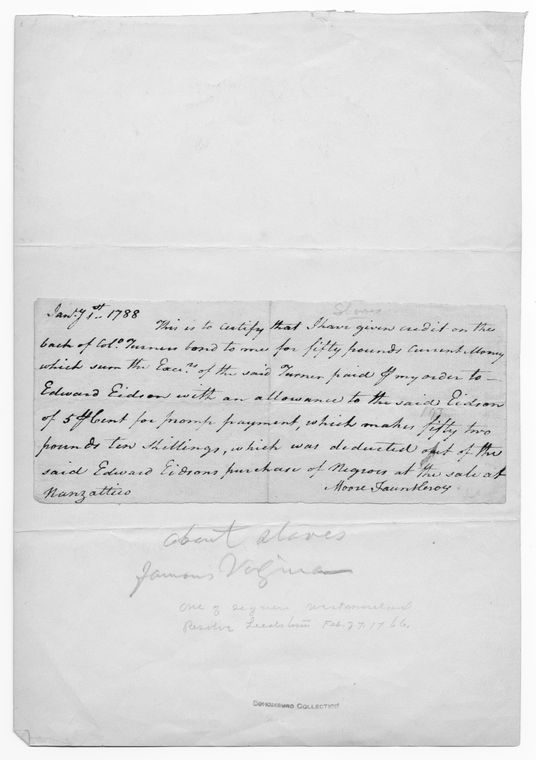 Slaves
Jan.y 1st 1788
This is to certify that I have given credit on the
back of Colo. Turners bond to me for fifty pounds Current Money
which sum the Exec.rs of the said Turner paid ⅌ my order to
Edward Eidson with an allowance to the said Eidson
of 5 ⅌ Cent for promp payment, which makes fifty two
pounds ten shillings, which was deducted out of the
said Edward Eidsons purchase of Negroes at the sale at
Nanzattico Moore Fauntleroy
about slaves
famous Virginia
one of signers Westmoreland
Resolv Leedstown Feb. 27. 1766.
SCHOMBURG COLLECTION